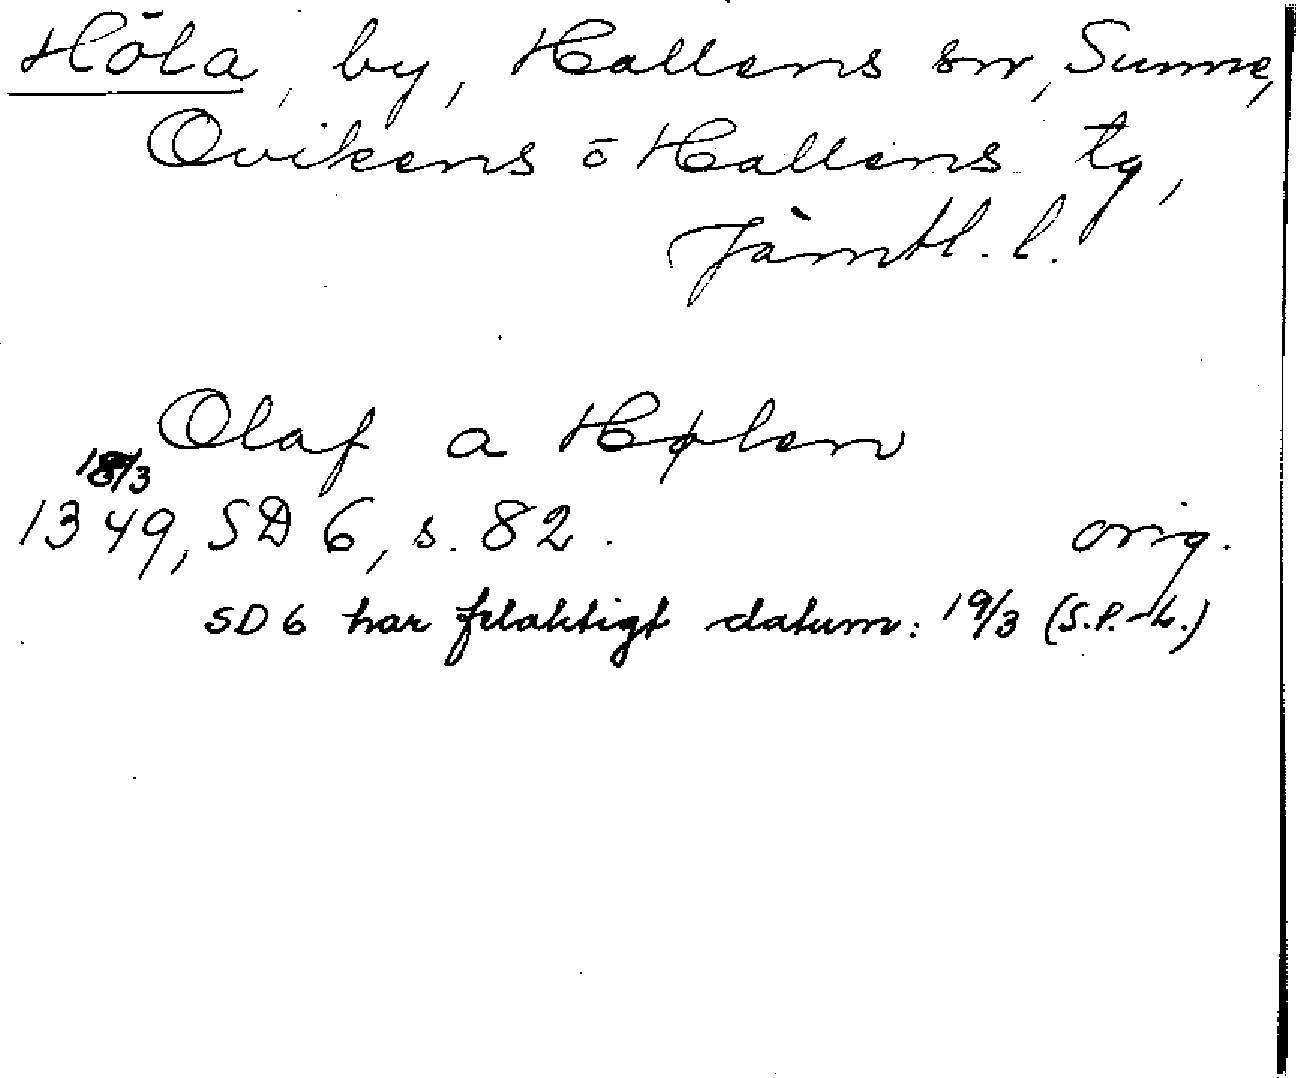 Höla, by, Hallens sn, Sunne,
Ovikens o Hallens tg,
Jämtl. l.
Olaf a Hølen
18/3
1349, SD 6, s. 82. orig.
SD 6 har felaktigt datum: 19/3 (S.P.-L.)